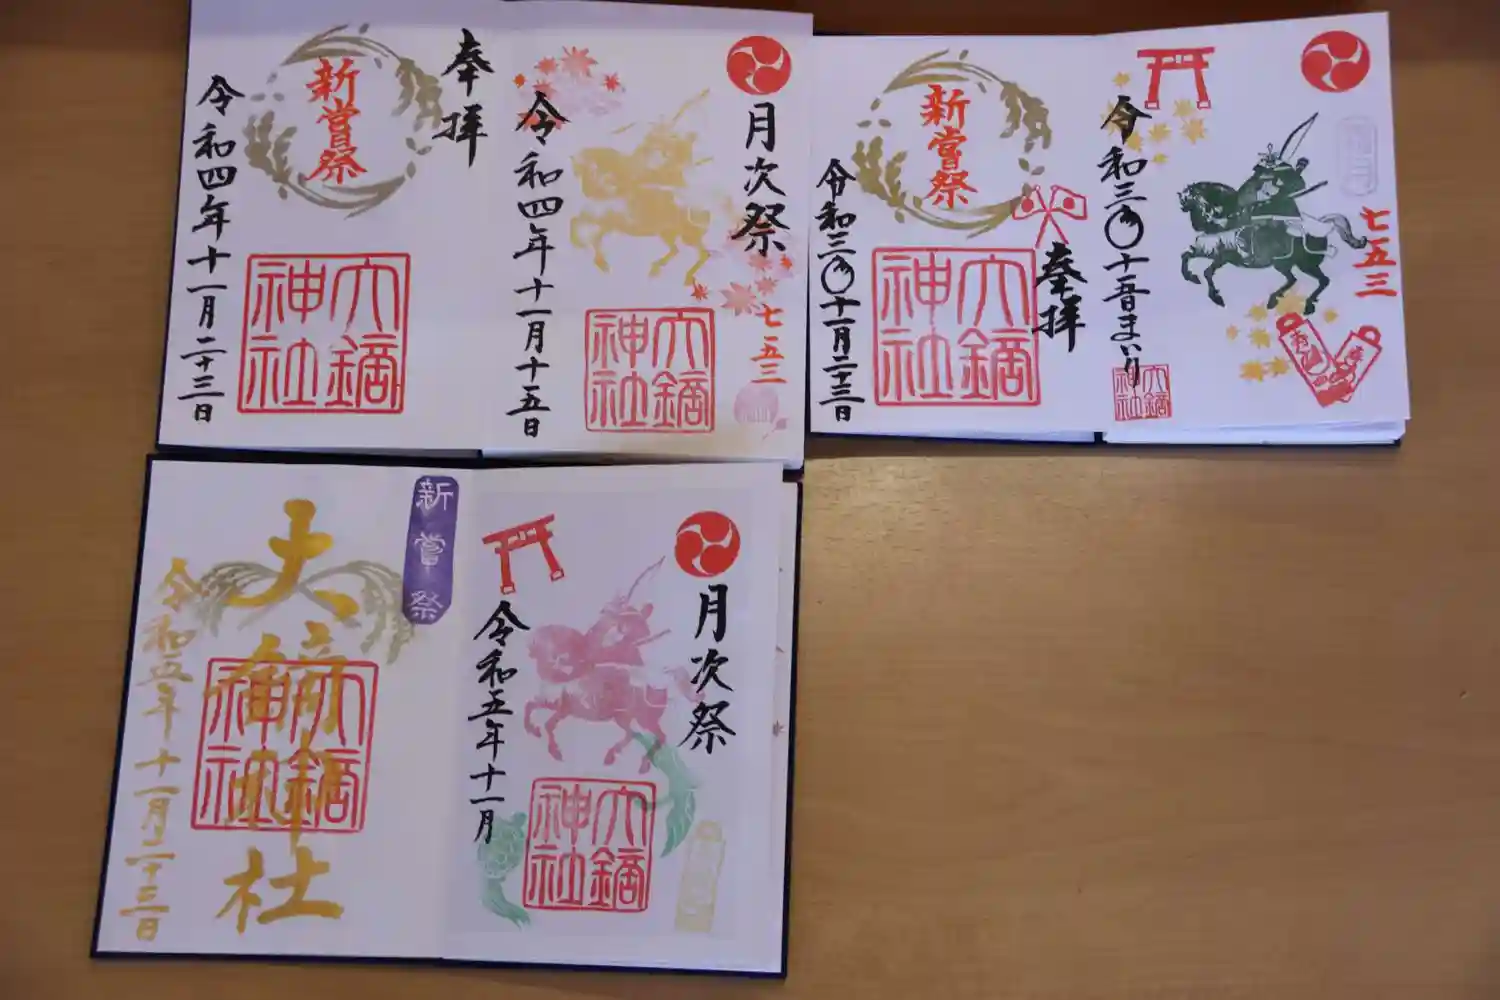 奉拝
新嘗祭
令和四年十一月二十三日
大鏑神社
月次祭
七五三
令和四年十一月十五日
大鏑神社
奉拝
新嘗祭
令和三年十一月二十三日
大鏑神社
七五三
大鏑神社
新嘗祭
大鏑神社
令和五年十一月二十三日
大鏑神社
月次祭
令和五年十一月
大鏑神社